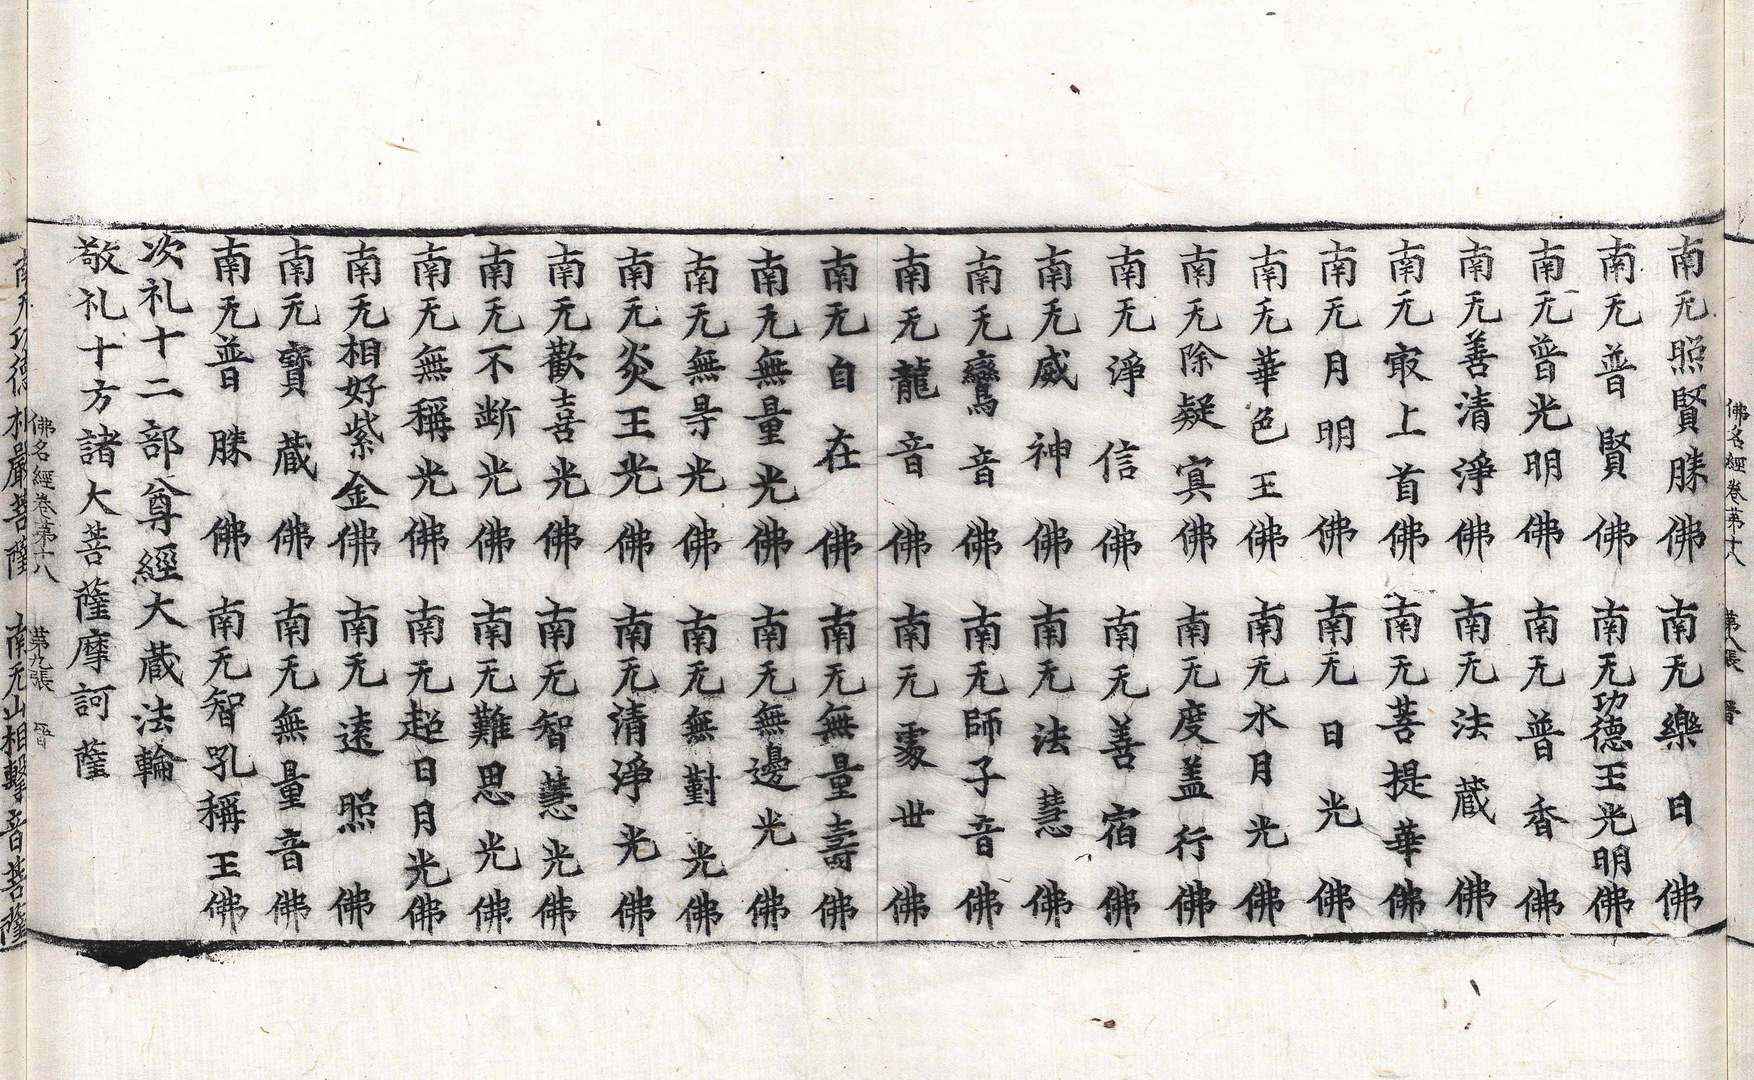 佛名經卷第十八 第八張 晉
南无照賢勝佛 南无樂日佛
南无普賢佛 南无功德王光明佛
南无普光明佛 南无普香佛
南无善清淨佛 南无法蔵佛
南无㝡上首佛 南无菩提華佛
南无月明佛 南无日光佛
南无華色王佛 南无水月光佛
南无除疑㝠佛 南无度盖行佛
南无淨信佛 南无善宿佛
南无威神佛 南无法慧佛
南无鸞音佛 南无師子音佛
南无龍音佛 南无處世佛
南无自在佛 南无無量壽佛
南无無量光佛 南无無邊光佛
南无無㝵光佛 南无無對光佛
南无炎王光佛 南无清淨光佛
南无歡喜光佛 南无智慧光佛
南无不断光佛 南无難思光佛
南无無稱光佛 南无超日月光佛
南无相好紫金佛 南无遠照佛
南无寶蔵佛 南无無量音佛
南无普勝佛 南无智吼稱王佛
次礼十二部尊經大蔵法輪
敬礼十方諸大菩薩摩訶薩
佛名經卷第十八 第九張 晉
南无功德相嚴菩薩 南无山相擊音菩薩